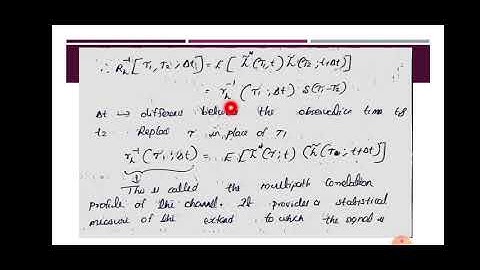 ∴ R_h̃^{-1} [τ1, τ2; Δt] = E [ h̃*(τ1, t) h̃(τ2; t+Δt)]
= r_h̃^{-1} (τ1; Δt) δ(τ1-τ2)
Δt ↪ different the observation time t1
t2 Replace τ in place of τ1
r_h̃^{-1} (τ; Δt) = E [ h̃*(τ; t) (h̃ ; t+Δt)]
↓
This is called the multipath correlation
profile of the channel. It provides a statistical
measure of the extend to which the signal is